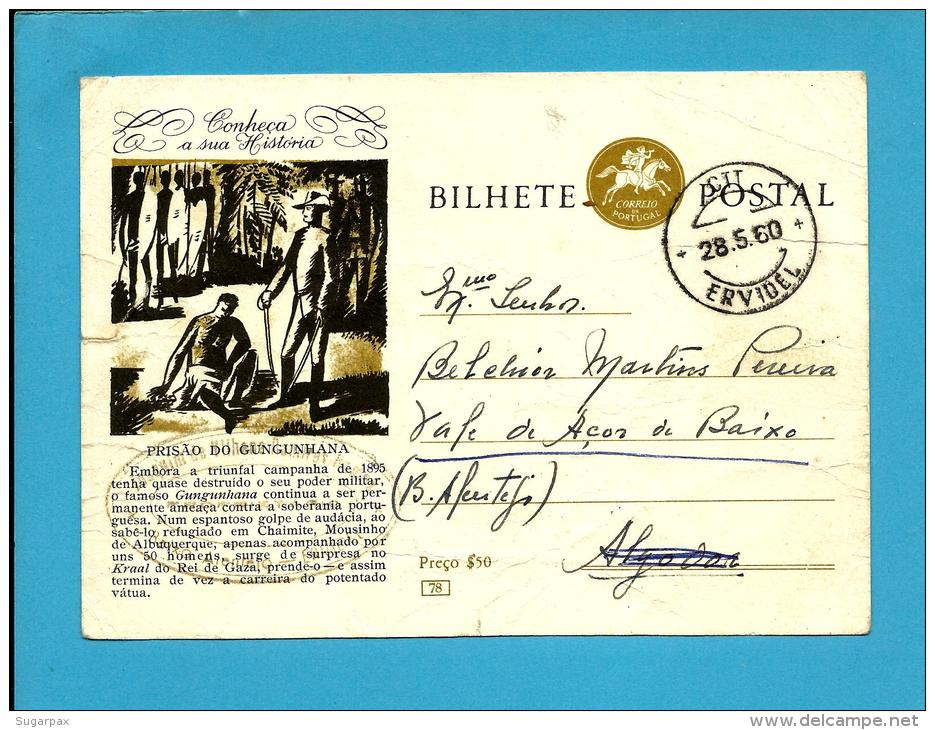 Conheça
a sua História
BILHETE POSTAL
CORREIO
DE
PORTUGAL
CTT
28.5.60
ERVIDEL
Exmo Senhor
Belchior Martins Pereira
Vale de Açor de Baixo
(B. Alentejo)
Algodor
PRISÃO DO GUNGUNHANA
Embora a triunfal campanha de 1895
tenha quase destruído o seu poder militar,
o famoso Gungunhana continua a ser per-
manente ameaça contra a soberania portu-
guesa. Num espantoso golpe de audácia, ao
sabê-lo refugiado em Chaimite, Mousinho
de Albuquerque, apenas acompanhado por
uns 50 homens, surge de surpresa no
Kraal do Rei de Gaza, prende-o — e assim
termina de vez a carreira do potentado
vátua.
Preço $50
78
Sugarpax
www.delcampe.net